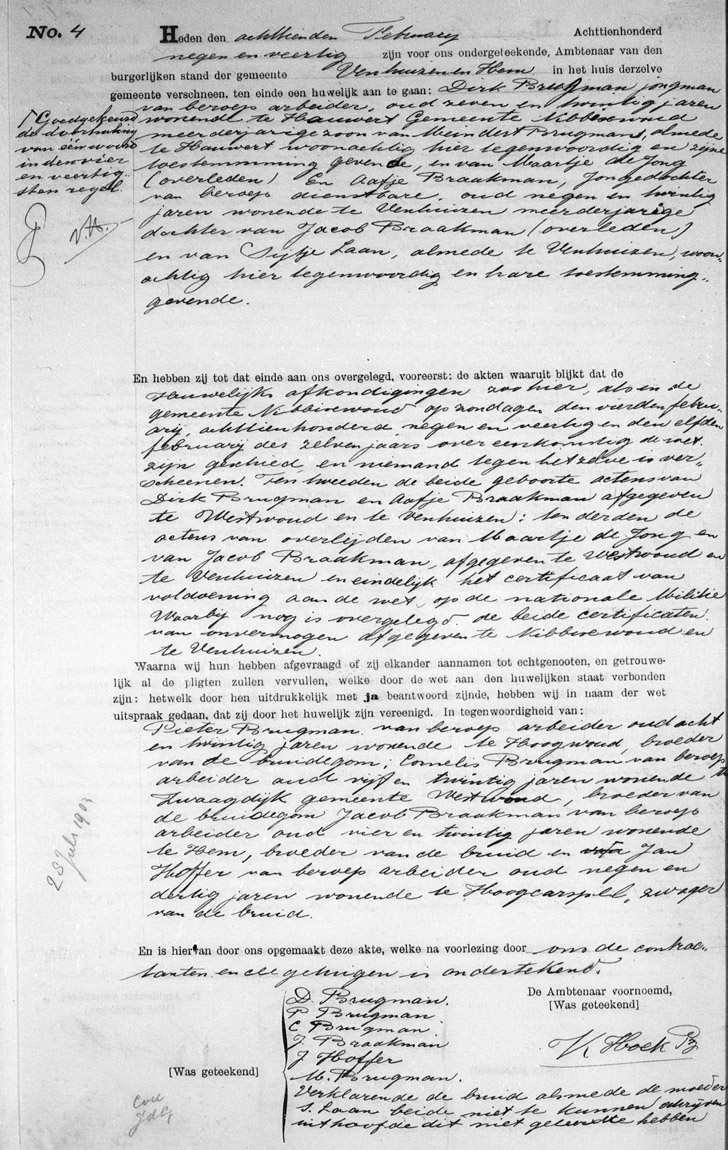 No. 4
Heden den achttienden February Achttienhonderd
negen en veertig zijn voor ons ondergeteekende, Ambtenaar van den
burgerlijken stand der gemeente Venhuizen en Hem in het huis derzelve
gemeente verschneen, ten einde een huwelijk aan te gaan: Dirk Brugman jongman
van beroep arbeider, oud zeven en twintig jaren
wonende te Hauwert Gemeente Nibbixwoud
meerderjarige zoon van Meindert Brugmans, almede
te Hauwert woonachtig hier tegenwoordig en zijne
toestemming gevende, en van Maartje de Jong
(overleden) En Aafje Braakman, Jongedochter
van beroep dienstbare, oud negen en twintig
jaren wonende te Venhuizen meerderjarige
dochter van Jacob Braakman (overleden)
en van Sijtje Laan, almede te Venhuizen, woon-
achtig hier tegenwoordig en hare toestemming
gevende.
Goedgekeurd
de doorhaling
van één woord
in den vier
en veertig-
sten regel.
V.H.
En hebben zij tot dat einde aan ons overgelegd, vooreerst: de akten waaruit blijkt dat de
Huwelijks afkondigingen zoo hier, als in de
gemeente Nibbixwoud op zondagen den vierden febru-
arij, achttienhonderd negen en veertig en den elfden
february des zelven jaars overeenkomstig de wet
zijn geschied, en niemand tegen hetzelve is ver-
scheenen. Ten tweeden de beide geboorte actens van
Dirk Brugman en Aafje Braakman afgegeven
te Westwoud en te Venhuizen: ten derden de
actens van overlijden van Maartje de Jong en
van Jacob Braakman, afgegeven te Westwoud en
te Venhuizen en eindelijk het certificaat van
voldoening aan de wet, op de nationale Militie
Waarbij nog is overgelegd de beide certificaten
van onvermogen afgegeven te Nibbixwoud en
te Venhuizen.
Waarna wij hun hebben afgevraagd of zij elkander aannamen tot echtgenooten, en getrouwe-
lijk al de pligten zullen vervullen, welke door de wet aan den huwelijken staat verbonden
zijn: hetwelk door hen uitdrukkelijk met ja beantwoord zijnde, hebben wij in naam der wet
uitspraak gedaan, dat zij door het huwelijk zijn vereenigd. In tegenwoordigheid van:
Pieter Brugman van beroep arbeider oud acht
en twintig jaren wonende te Hoogwoud, broeder
van de bruidegom, Cornelis Brugman van beroep
arbeider oud vijf en twintig jaren wonende te
Zwaagdijk gemeente Westwoud, broeder van
de bruidegom Jacob Braakman van beroep
arbeider oud vier en twintig jaren wonende
te Hem, broeder van de bruid en Jan
Hoffer van beroep arbeider oud negen en
dertig jaren wonende te Hoogcarspel, zwager
van de bruid.
23 Juli 1907
En is hiervan door ons opgemaakt deze akte, welke na voorlezing door ons de contrac-
tanten en alle getuigen is onderteekend.
De Ambtenaar voornoemd,
[Was geteekend]
K Hoek Pz
[Was geteekend]
D. Brugman.
P Brugman
C Brugman
J. Braakman
J Hoffer
M. Brugman.
Verklarende de bruid almede de moeder
S. Laan beide niet te kunnen schrijven
uithoofde dit niet geleerd te hebben